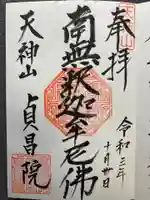 奉拝
令和三年
十月廿日
南無釈迦牟尼佛
天神山
貞昌院